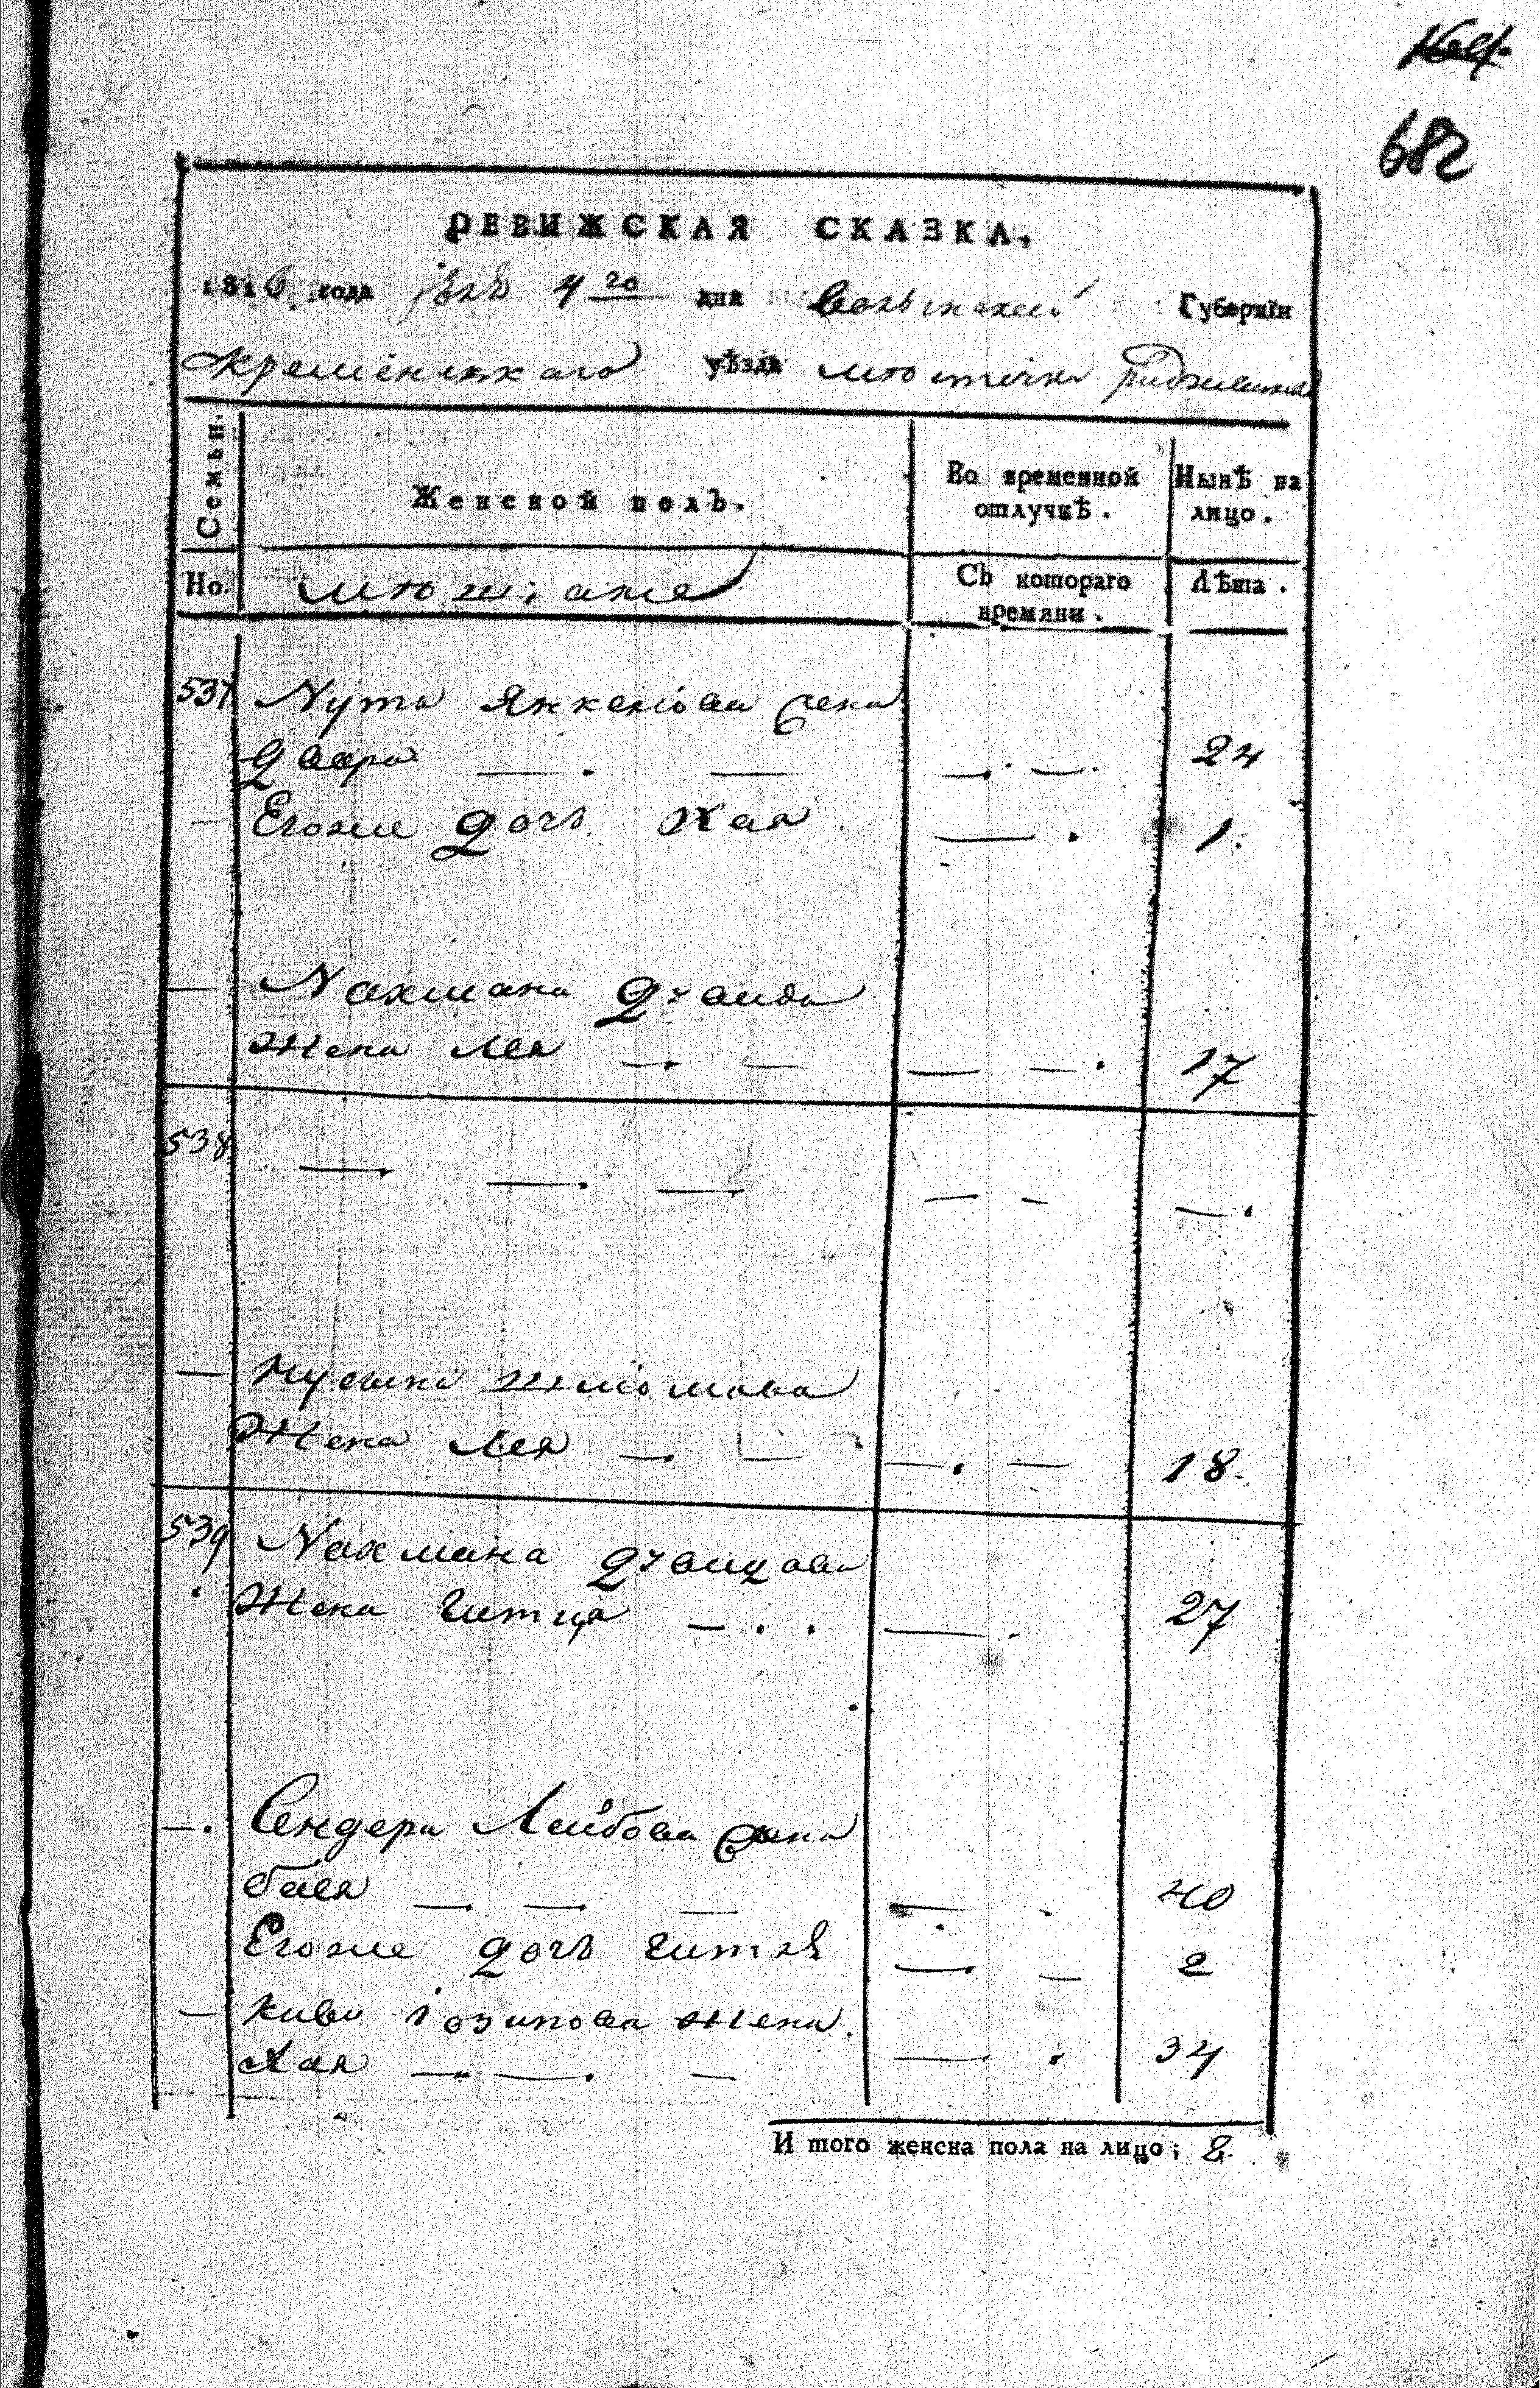 682
РЕВИЖСКАЯ СКАЗКА.
1816 года 4 го дня Волынской Губернїи
Кременецкаго уѣзда местечка Радзивила
Семьи. Женской полъ. Во временной отлучкѣ. Нынѣ на лицо.
Но. Съ котораго времяни. Лѣта.
537 Нута Янкелiова жена
Двора — . — — . — . 24
— Егоже дочь Хая — . 1.
— Нахмана
Жена Лея — . — — — . 17
538 — . — . — — - — .
— Шлiомова
Жена Лея — . — — . — 18.
539 Нахмана
Жена Гитля — . . — . 27
— . Сендера Лейбова жена
бася — — — — . 40
Егоже дочь Гитля — . — 2
— Кивы Iозипова жена.
Хая — — . — — . 34
И того женска пола на лицо; 8.